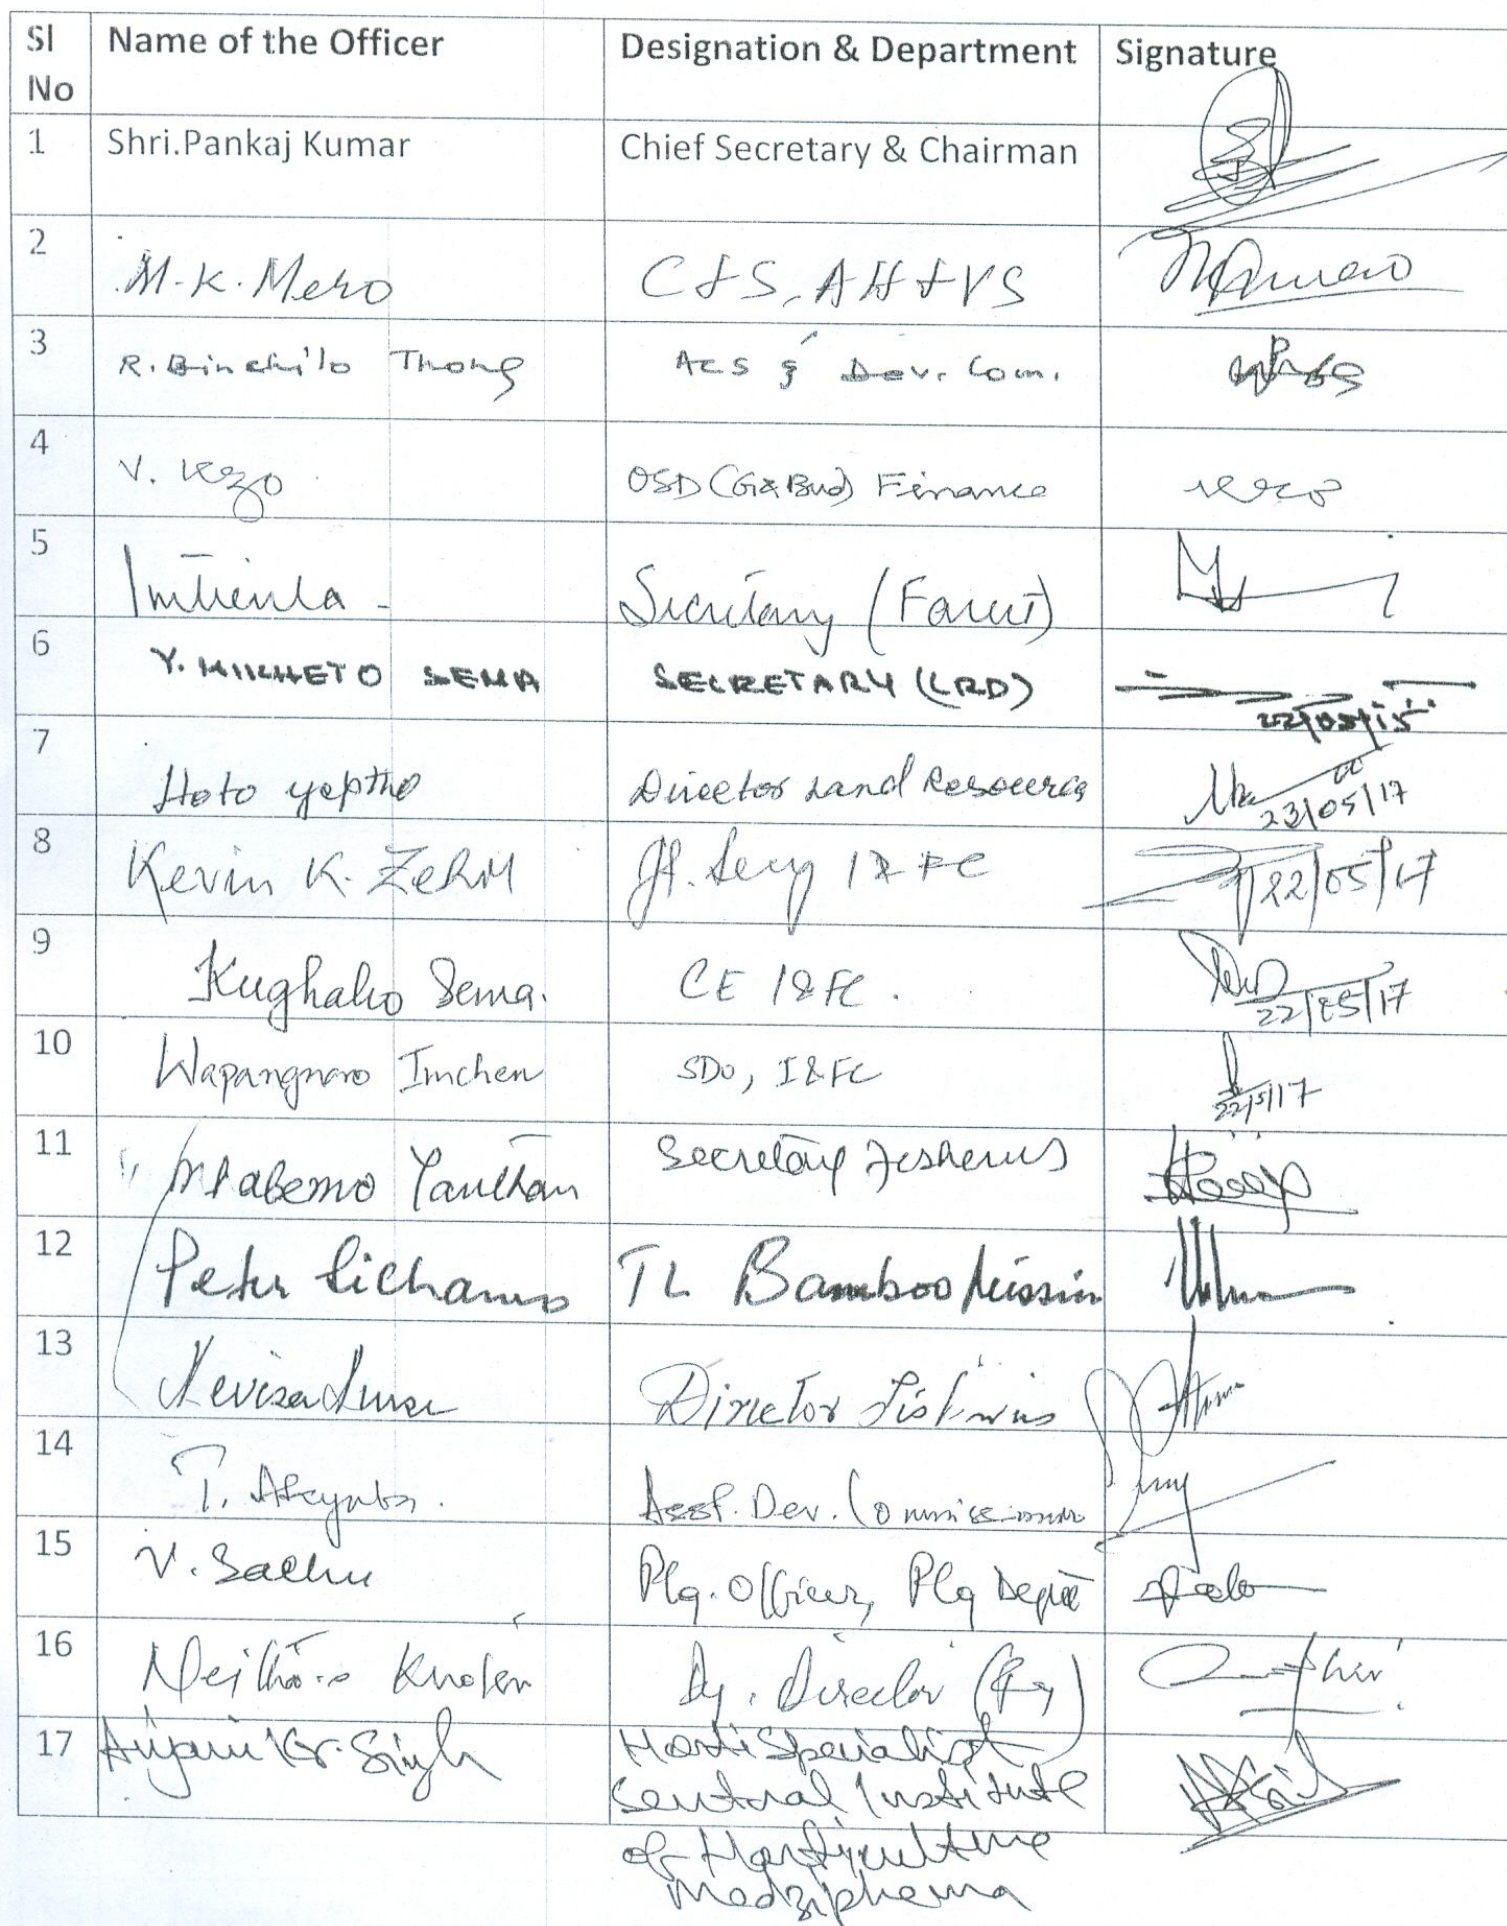 Sl No Name of the Officer Designation & Department Signature
1 Shri.Pankaj Kumar Chief Secretary & Chairman
2 M.K. Mero C&S, AH&VS
3 R. Binchilo Thong ACS & Dev. Com.
4 V. Kezo OSD (G&Bud) Finance
5 Imtienla Secretary (Forest)
6 Y. KIKHETO SEMA SECRETARY (LRD) 22/05/15
7 Hoto yeptho Director Land Resources 23/05/17
8 Kevin K. Zehol Jt. Secy I&FC 22/05/17
9 Kughaho Sema. CE I&FC. 22/05/17
10 Wapangnaro Imchen SDO, I&FC 22/5/17
11 Mhabemo Yanthan Secretary Fisheries
12 Peter Lichamo TL Bamboo Mission
13 Director Fisheries
14 T. Asst. Dev. Commissioner
15 V. Sachu Plg. Officer, Plg Deptt
16 Dy. Director
17 Anjani Kr. Singh Horti Specialist
Central Institute
of Horticulture
Medziphema